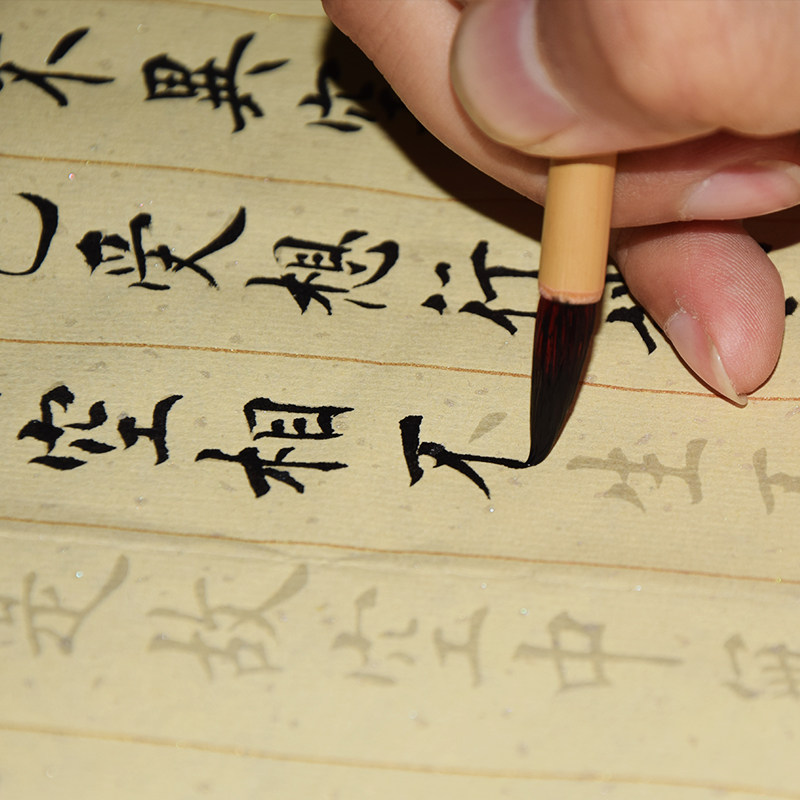 不異空
受想行
空相不生不
是故空中無